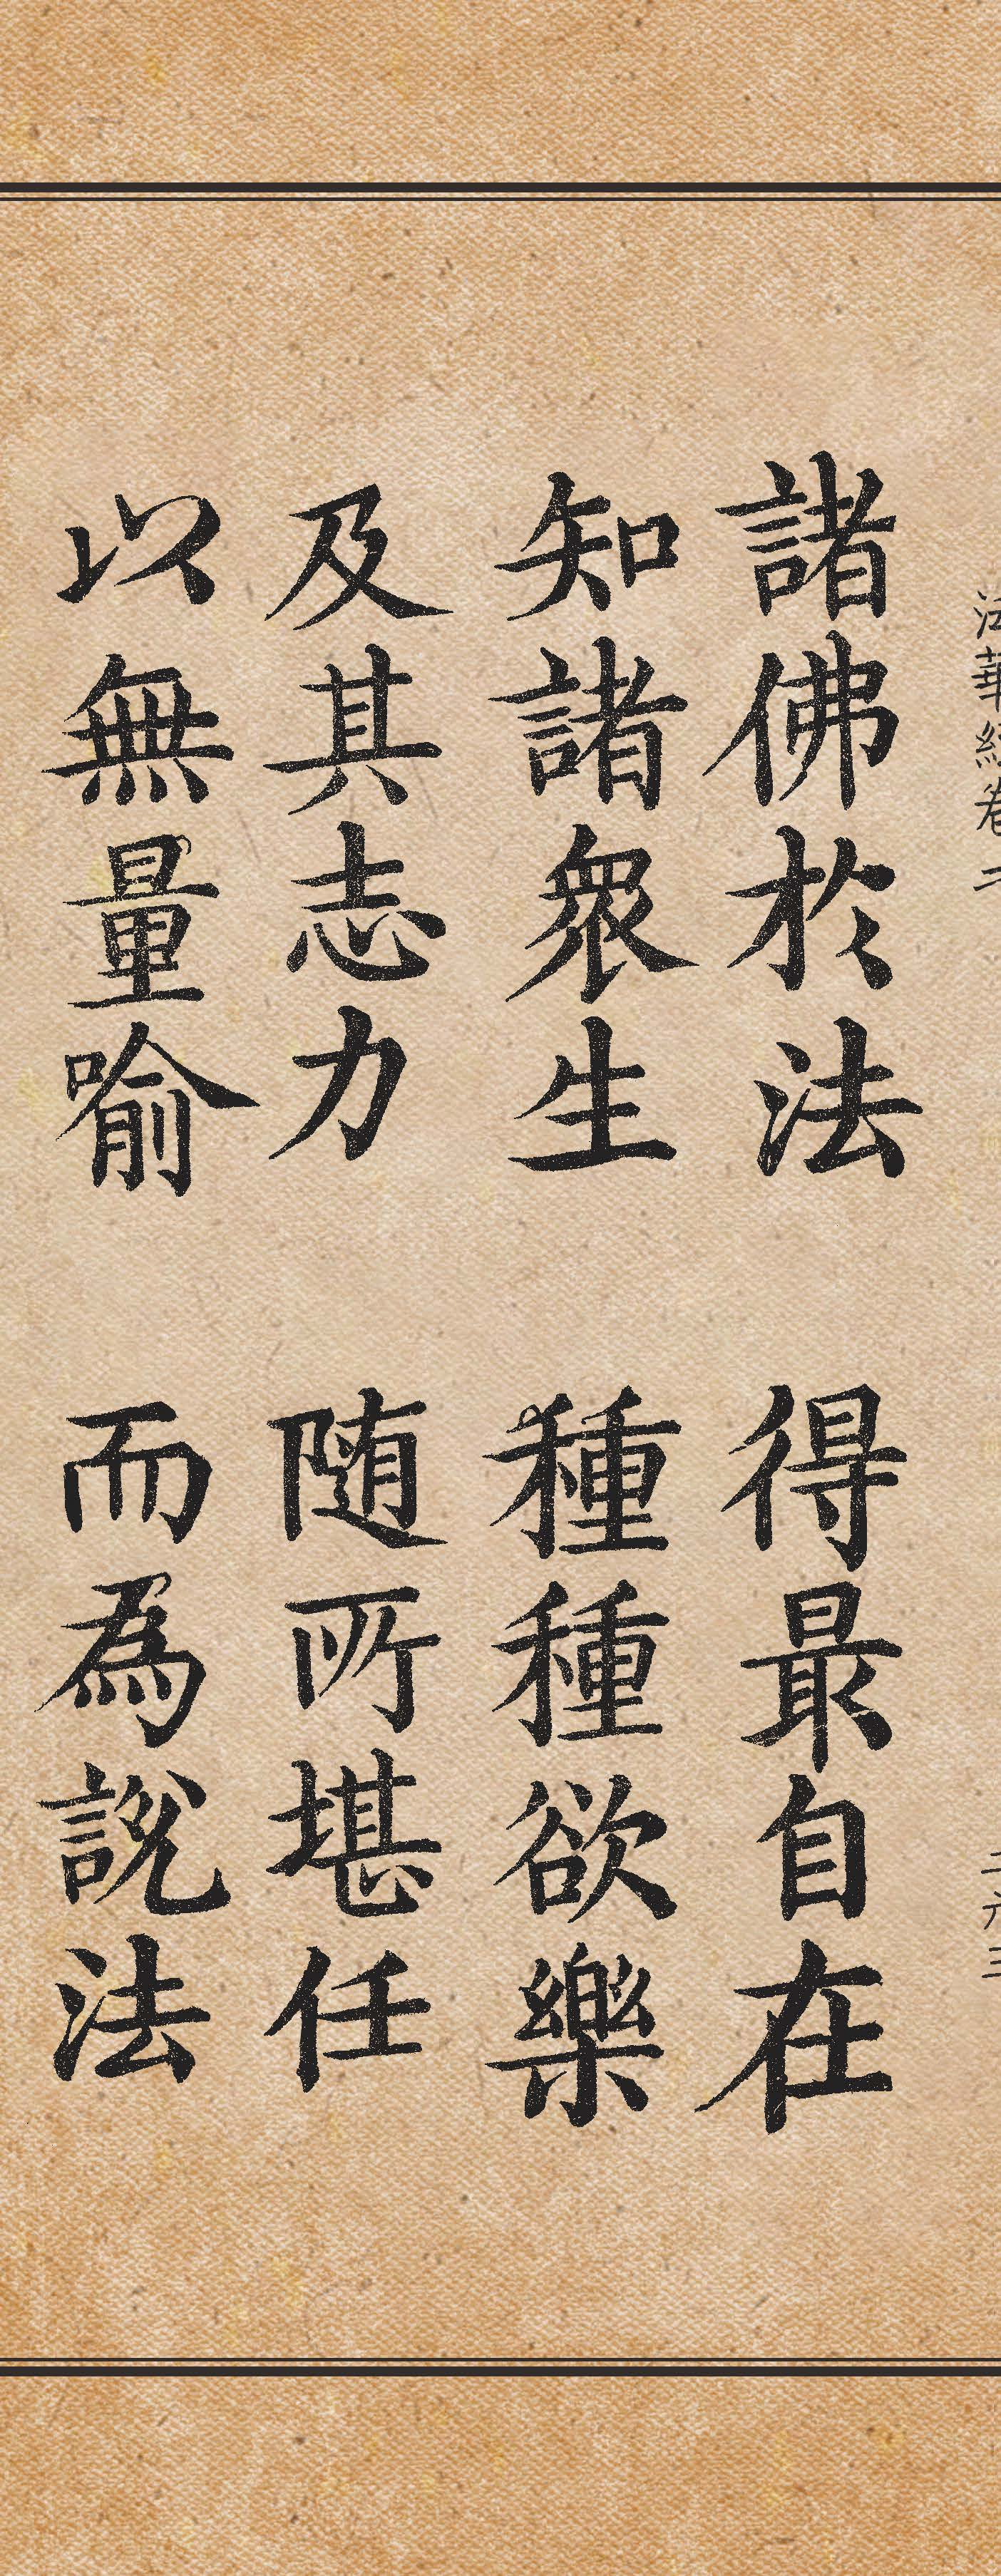 法華經卷二 二六三
諸佛於法 得最自在
知諸眾生 種種欲樂
及其志力 随所堪任
以無量喻 而為說法